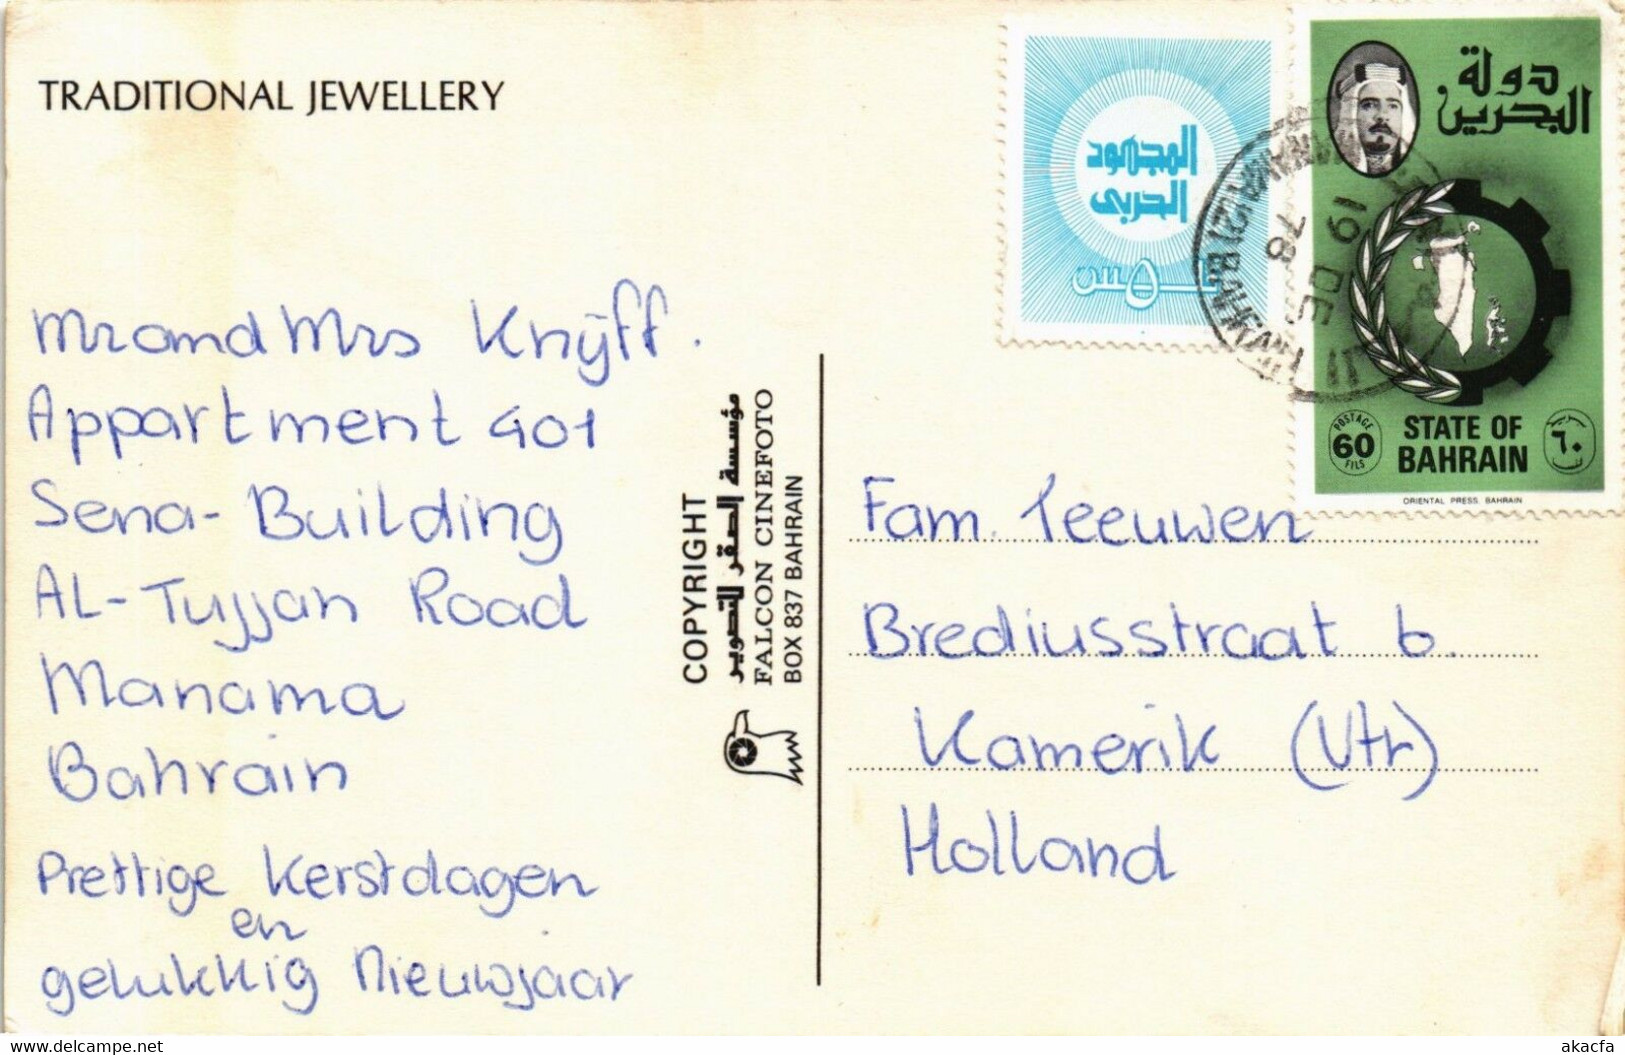 TRADITIONAL JEWELLERY
Mr and Mrs Knijff.
Appartment 401
Sena-Building
AL-Tujjan Road
Manama
Bahrain
Prettige Kerstdagen
en
gelukkig Nieuwjaar
COPYRIGHT
مؤسسة الصقر للتصوير
FALCON CINEFOTO
BOX 837 BAHRAIN
المجهود
الحربي
٥ فلس
دولة
البحرين
POSTAGE
60
FILS
STATE OF
BAHRAIN
٦٠
ORIENTAL PRESS BAHRAIN
BAHRAIN
19 DE
78
Fam. Teeuwen
Brediusstraat 6.
Kamerik (Utr)
Holland
delcampe.net
akacfa